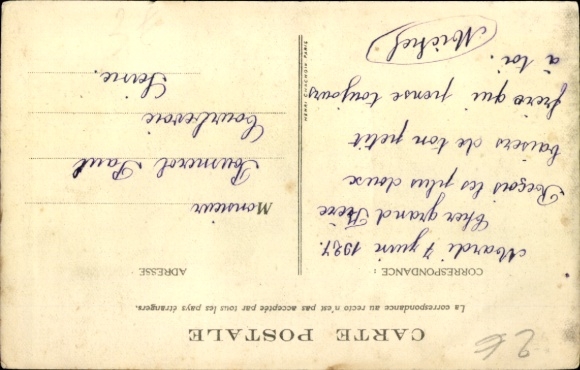 26
CARTE POSTALE
La correspondance au recto n'est pas acceptée par tous les pays étrangers.
CORRESPONDANCE :
Mardi 7 juin 1927.
Cher grand Frère
Reçois les plus doux
baisers de ton petit
frère qui pense toujours
à toi.
Michel
HENRI CHACHOIN PARIS
ADRESSE
Monsieur
Paul
Courbevoie
Seine.